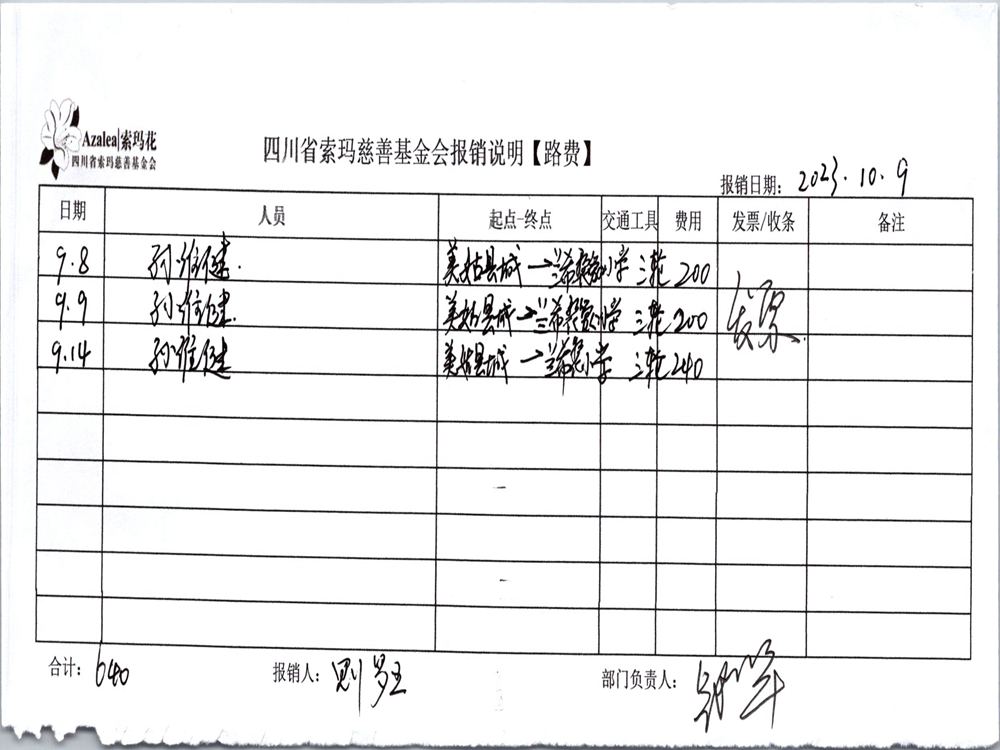 Azalea|索玛花
四川省索玛慈善基金会
四川省索玛慈善基金会报销说明【路费】
报销日期: 2023.10.9
日期 人员 起点-终点 交通工具 费用 发票/收条 备注
9.8 孙维健. 美姑县城→ 小学 三轮 200
9.9 孙维健. 美姑县城→ 小学 三轮 200 发票.
9.14 孙维健 美姑县城→ 小学 三轮 240
合计: 640
报销人:
部门负责人: